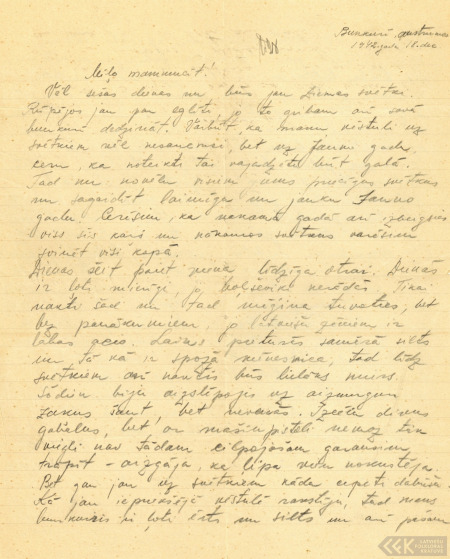 Bunkurī, austrumos
1942. gada 18. dec
Mīļo mammucīt!
Vēl sešas dienas un būs jau Ziemas svētki.
Rūpējos jau par eglīti, jo to gribam arī savā
bunkurā dedzināt. Varbūt, ka manu vēstuli uz
svētkiem vēl nesaņemsi, bet uz Jauno gadu
ka noteikti tai vajadzētu būt galā.
Tad nu novēlu visiem jums priecīgus svētkus
un sagaidīt laimīgu un jauku Jauno
gadu. Cerēsim, ka nākamā gadā arī izbeigsies
viss šis karš un nākamos svētkus varēsim
svinēt visi kopā.
Dienas šeit paiet viena līdzīga otrai. Dienās
ir loti mierīgi, jo boļševiki nerādās. Tikai
naktī šad un tad mēģina tuvoties, bet
bez panākumiem, jo latviešu zēniem ir
labas acis. Laiks pieturās samērā silts
un tā kā ir spoža mēnesnīca, tad līdz
svētkiem arī naktis būs lielāks miers.
Šodien biju aizslēpojis uz aizmuguri
zaķus šaut, bet nevarēja. Redzēju divus
gabalus, bet ar mašīnpistoli nemaz tik
viegli nav tādam cilpojošam garausim
trāpīt - aizgāja, ka lipa vien nokustēja.
Bet gan jau uz svētkiem kādu cepeti dabūšu.
Kā jau iepriekšējā vēstulē rakstīju, tad mans
bunkuris ir ļoti ērts un silts un arī pašam
LFK LATVIEŠU FOLKLORAS KRĀTUVE